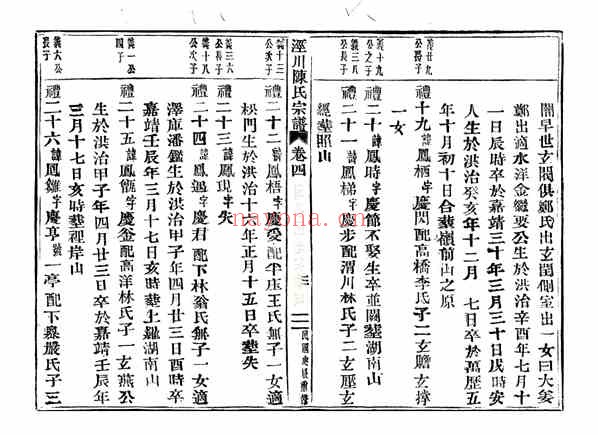 閣早世玄閣俱鄭氏出玄閏側室出一女曰大姜
鄭出適水洋金繼要公生於洪治辛酉年七月十
一日辰時卒於嘉靖三十年三月三十日戌時安
人生於洪治癸亥年十二月 七日卒於萬歷五
年十月初十日合塟嶺前山之原
義廿九公長子
禮十九諱鳳栖字慶閃配高橋李氏子二玄贍玄撐
一女
義十九公之子
禮二十諱鳳時字慶節不娶生卒並闕塟湖南山
義三八公長子
禮二十一諱鳳梯字慶步配渭川林氏子二玄歷玄
經塟照山
涇川陳氏宗譜 卷四 三
義十三公次子
禮二十二諱鳳梧字慶愛配平庄王氏無子一女適
松門生於洪治十七年正月十五日卒塟失
義三六公長子
禮二十三諱鳳現字失
義十八公次子
禮二十四諱鳳遇字慶君配下林翁氏無子一女適
澤庫潘鑑生於洪治甲子年四月廿三日酉時卒
嘉靖壬辰年三月十七日亥時塟上羅湖南山
義一公四子
禮二十五諱鳳甑字慶釜配高洋林氏子一玄燕公
生於洪治甲子年四月廿三日卒於嘉靖壬辰年
三月十七日亥時塟裡岸山
義六公長子
禮二十六諱鳳雛字慶亨號一亭配下梟嚴氏子三
naxona.com